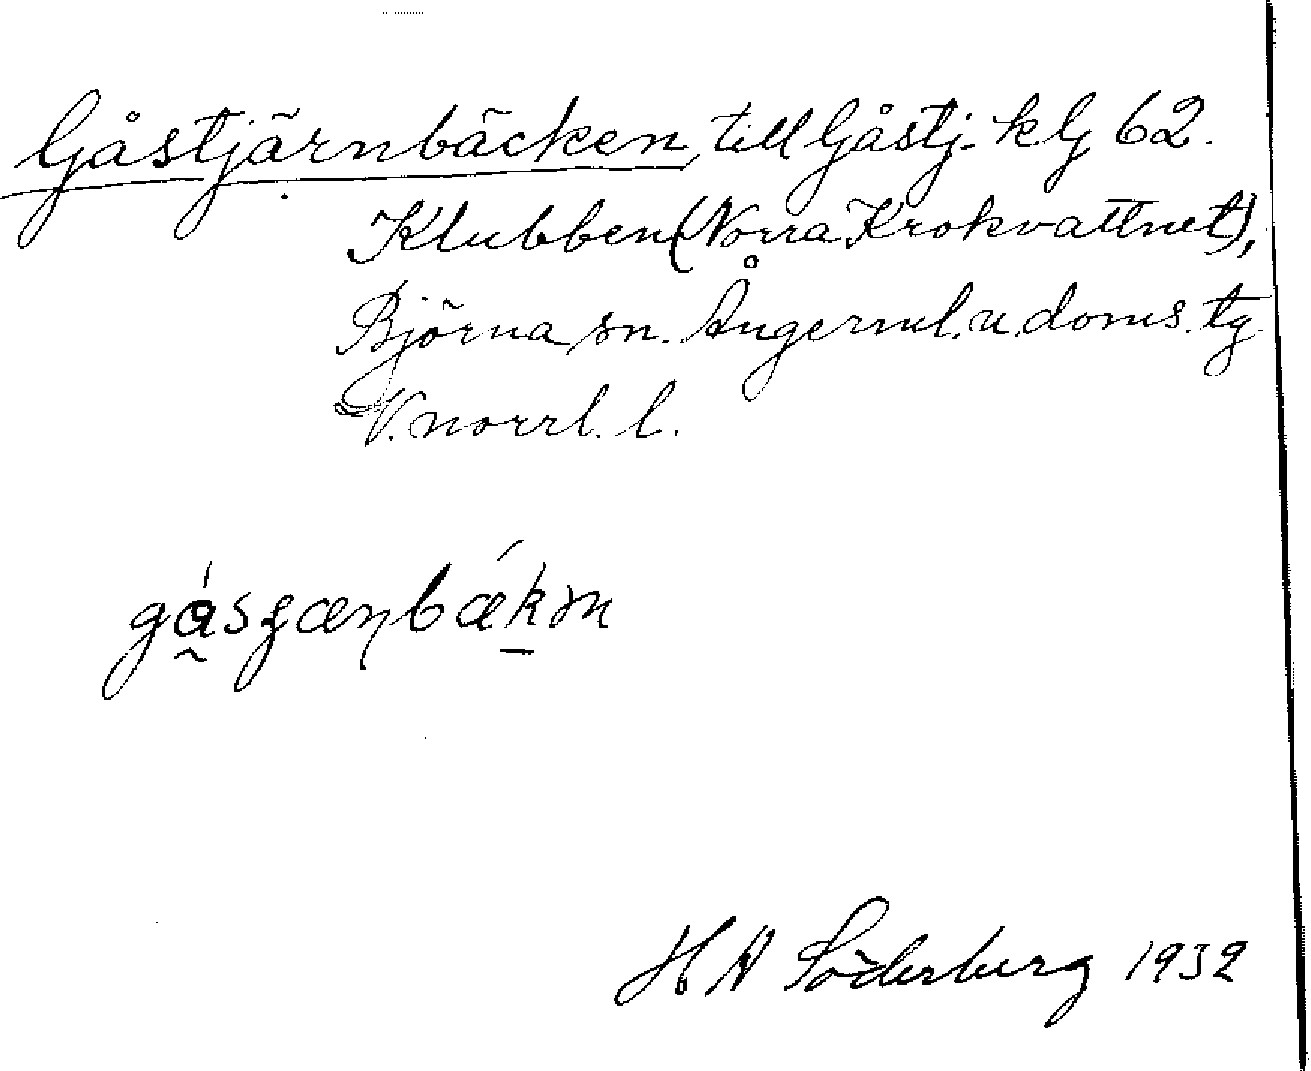 Gåstjärnbäcken, till Gåstj. k G 62.
Klubben (Norra Krokvattnet),
Björna sn. Ångerml. u. doms. tg
V. norrl. l.
H A Söderberg 1932